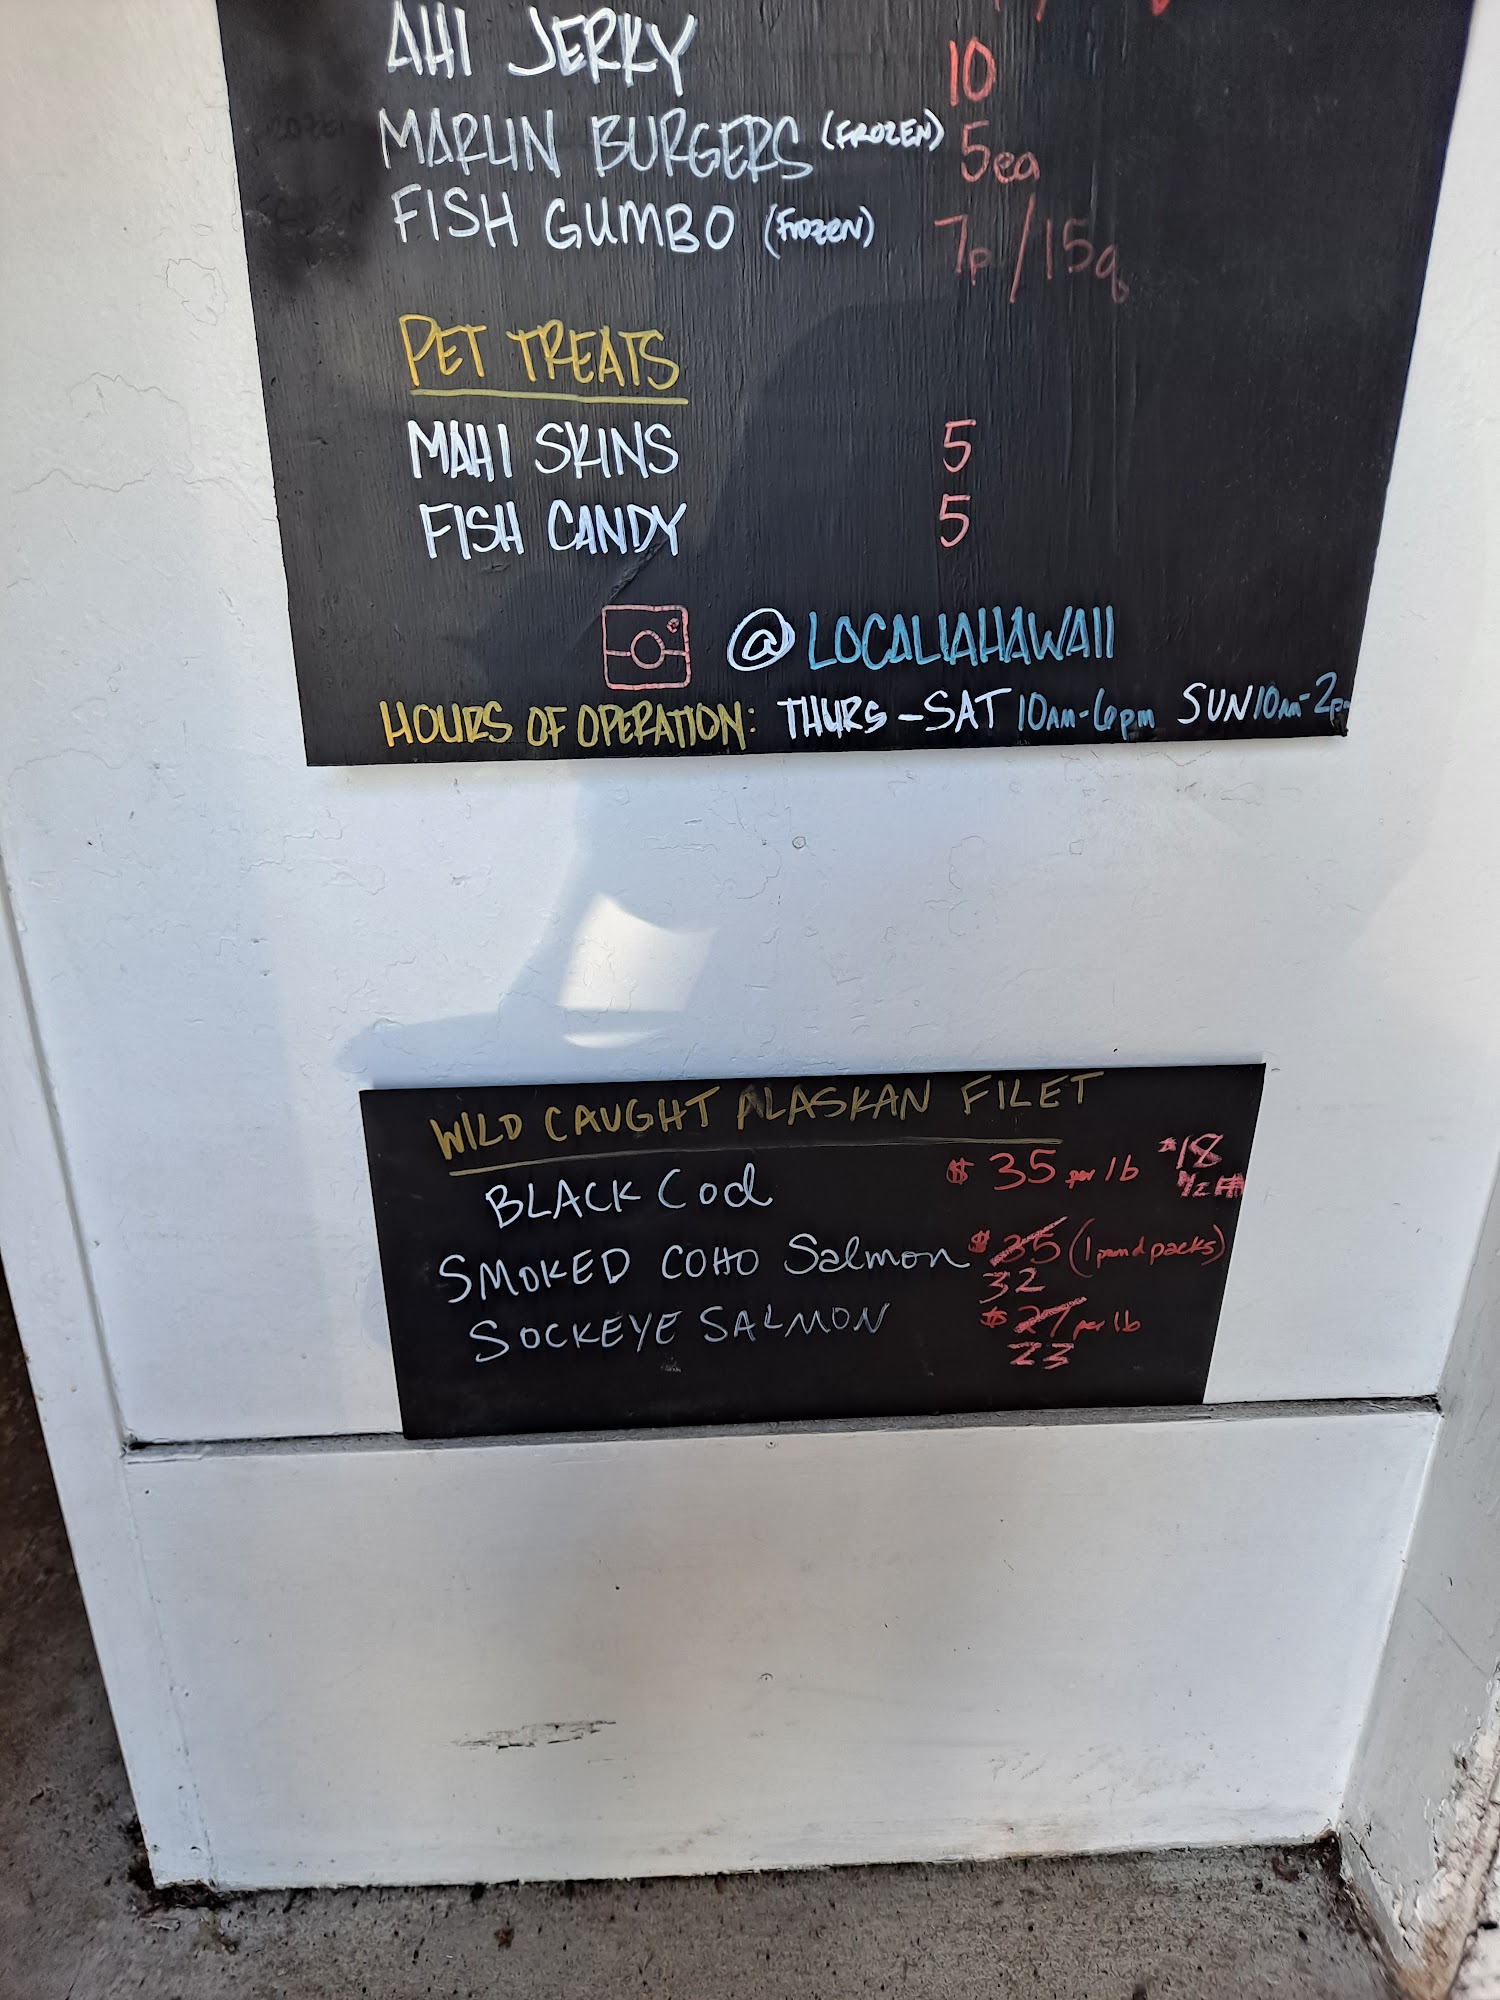 AHI JERKY 10
MARLIN BURGERS (FROZEN) 5ea
FISH GUMBO (FROZEN) 7p/15q
PET TREATS
MAHI SKINS 5
FISH CANDY 5
@LOCALIAHAWAII
HOURS OF OPERATION: THURS-SAT 10AM-6pm SUN 10AM-2p
WILD CAUGHT ALASKAN FILET
BLACK Cod $35 per lb $18
1/2
SMOKED COHO Salmon $35 (1 pound packs)
32
SOCKEYE SALMON $27 per lb
23